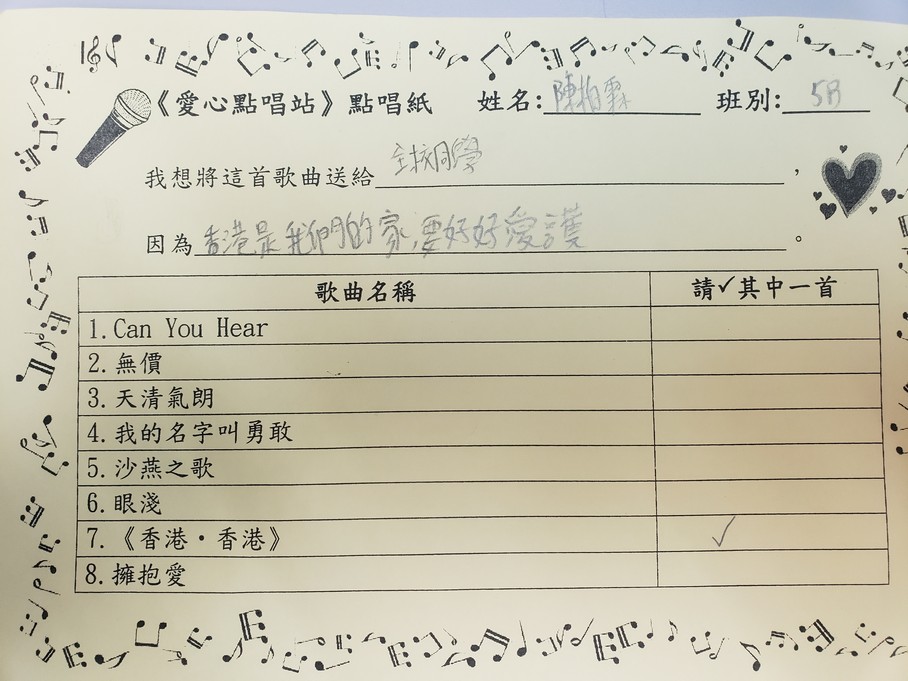 《愛心點唱站》點唱紙 姓名:陳柏霖 班別:5B
我想將這首歌曲送給全校同學,
因為香港是我們的家,要好好愛護。
歌曲名稱 請✓其中一首
1.Can You Hear
2.無價
3.天清氣朗
4.我的名字叫勇敢
5.沙燕之歌
6.眼淺
7.《香港·香港》 ✓
8.擁抱愛